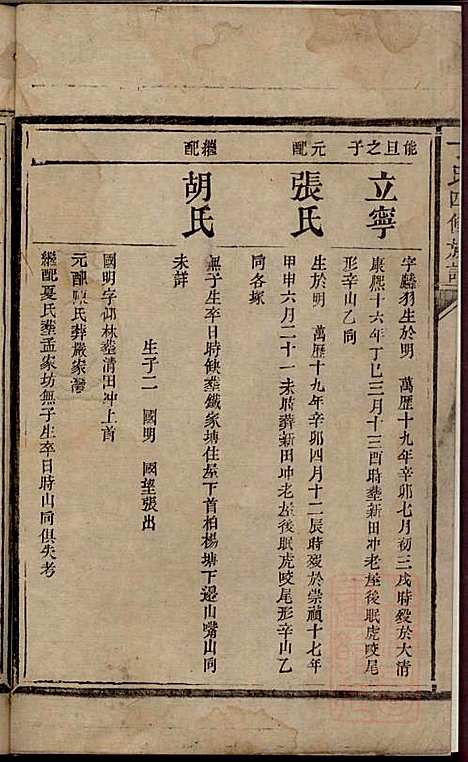 能旦之子
立寧
字驎羽生於明 萬歷十九年辛卯七月初三戌時歿於大清
康熙十六年丁巳三月十三酉時葬新田冲老屋後眠虎咬尾
形辛山乙同
元配
張氏
生於明 萬歷十九年辛卯四月十二辰時歿於崇禎十七年
甲申六月二十一未時葬新田冲老屋後眠虎咬尾形辛山乙
同各塚
繼配
胡氏
無子生卒日時缺葬鐵家塘住屋下首柏楊塘下邉山嘴山同
未詳
生子二 國明 國望張出
國明字卬林葬清田冲上首
元配陳氏葬嚴家灣
繼配夏氏葬孟家坊無子生卒日時山同俱失考